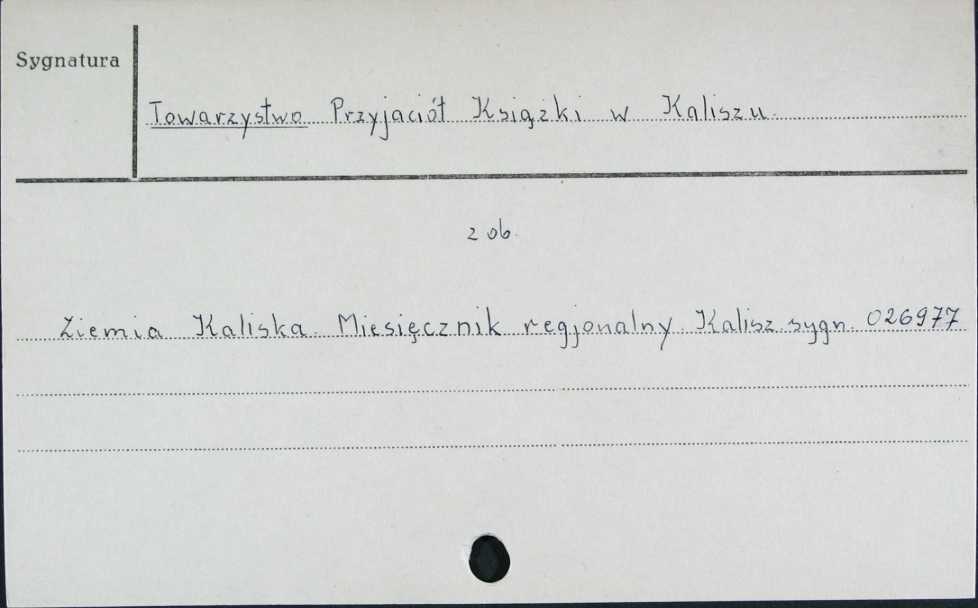 Sygnatura
Towarzystwo Przyjaciół Książki w Kaliszu.
z ob.
Ziemia Kaliska. Miesięcznik regjonalny. Kalisz. sygn. 026977